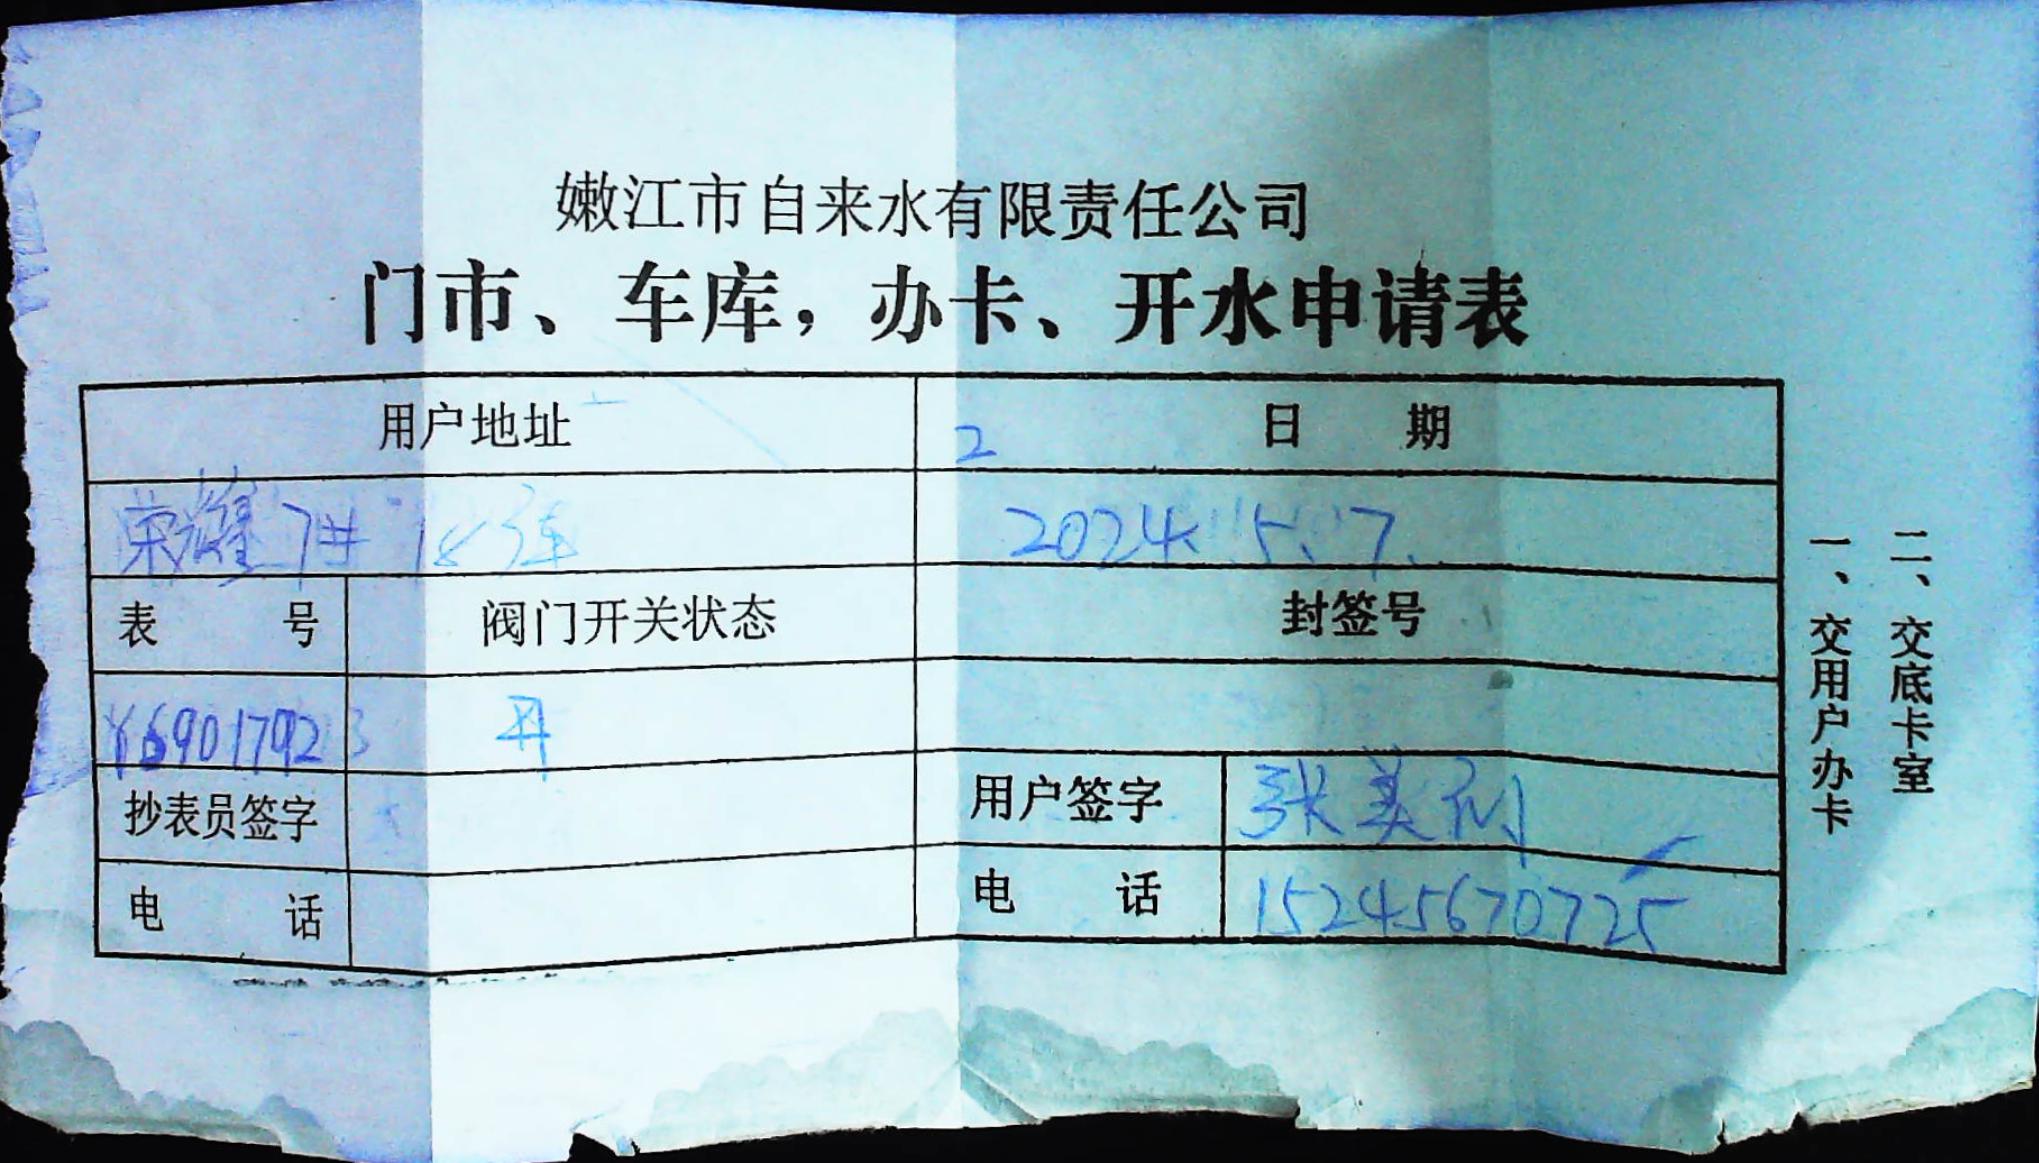 嫩江市自来水有限责任公司
门市、车库，办卡、开水申请表
用户地址 日 期
2
荣耀7# 18号车 2024.5.7.
表 号 阀门开关状态 封签号
Y69017923 开
抄表员签字 用户签字 张美
电 话 电 话 15245670725
一、交用户办卡
二、交底卡室